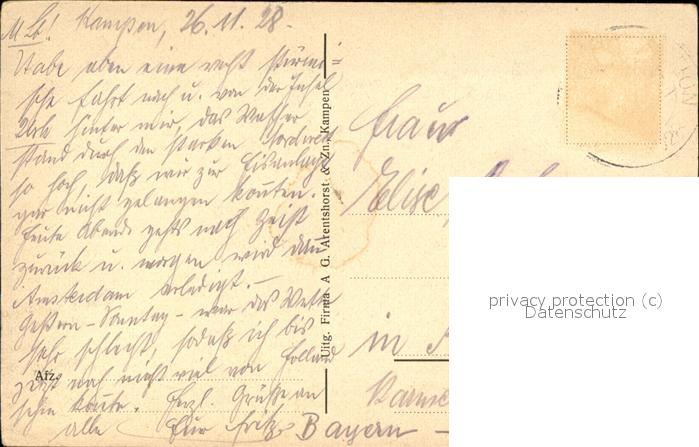 M. Lb! Kampen, 26.11.28.
Habe eben eine recht stürmi=
sche Fahrt nach u. von der Insel
Urk hinter mir, das Wasser
stand durch den starken Nordwest
so hoch, daß wir zur Eisanlage
gar nicht gelangen konnten.
Heute Abend gehts nach Zeist
zurück u. morgen wird dann
Amsterdam erledigt. –
Gestern – Sonntag – war das Wetter
sehr schlecht, sodaß ich bis
jetzt noch nicht viel von Holland
sehen konnte. Herzl. Grüße an
alle Euer Fritz
Afz.
Uitg. Firma A G. Arentshorst & Zn., Kampen
Frau
Elise
in
Bayern –
privacy protection (c)
Datenschutz